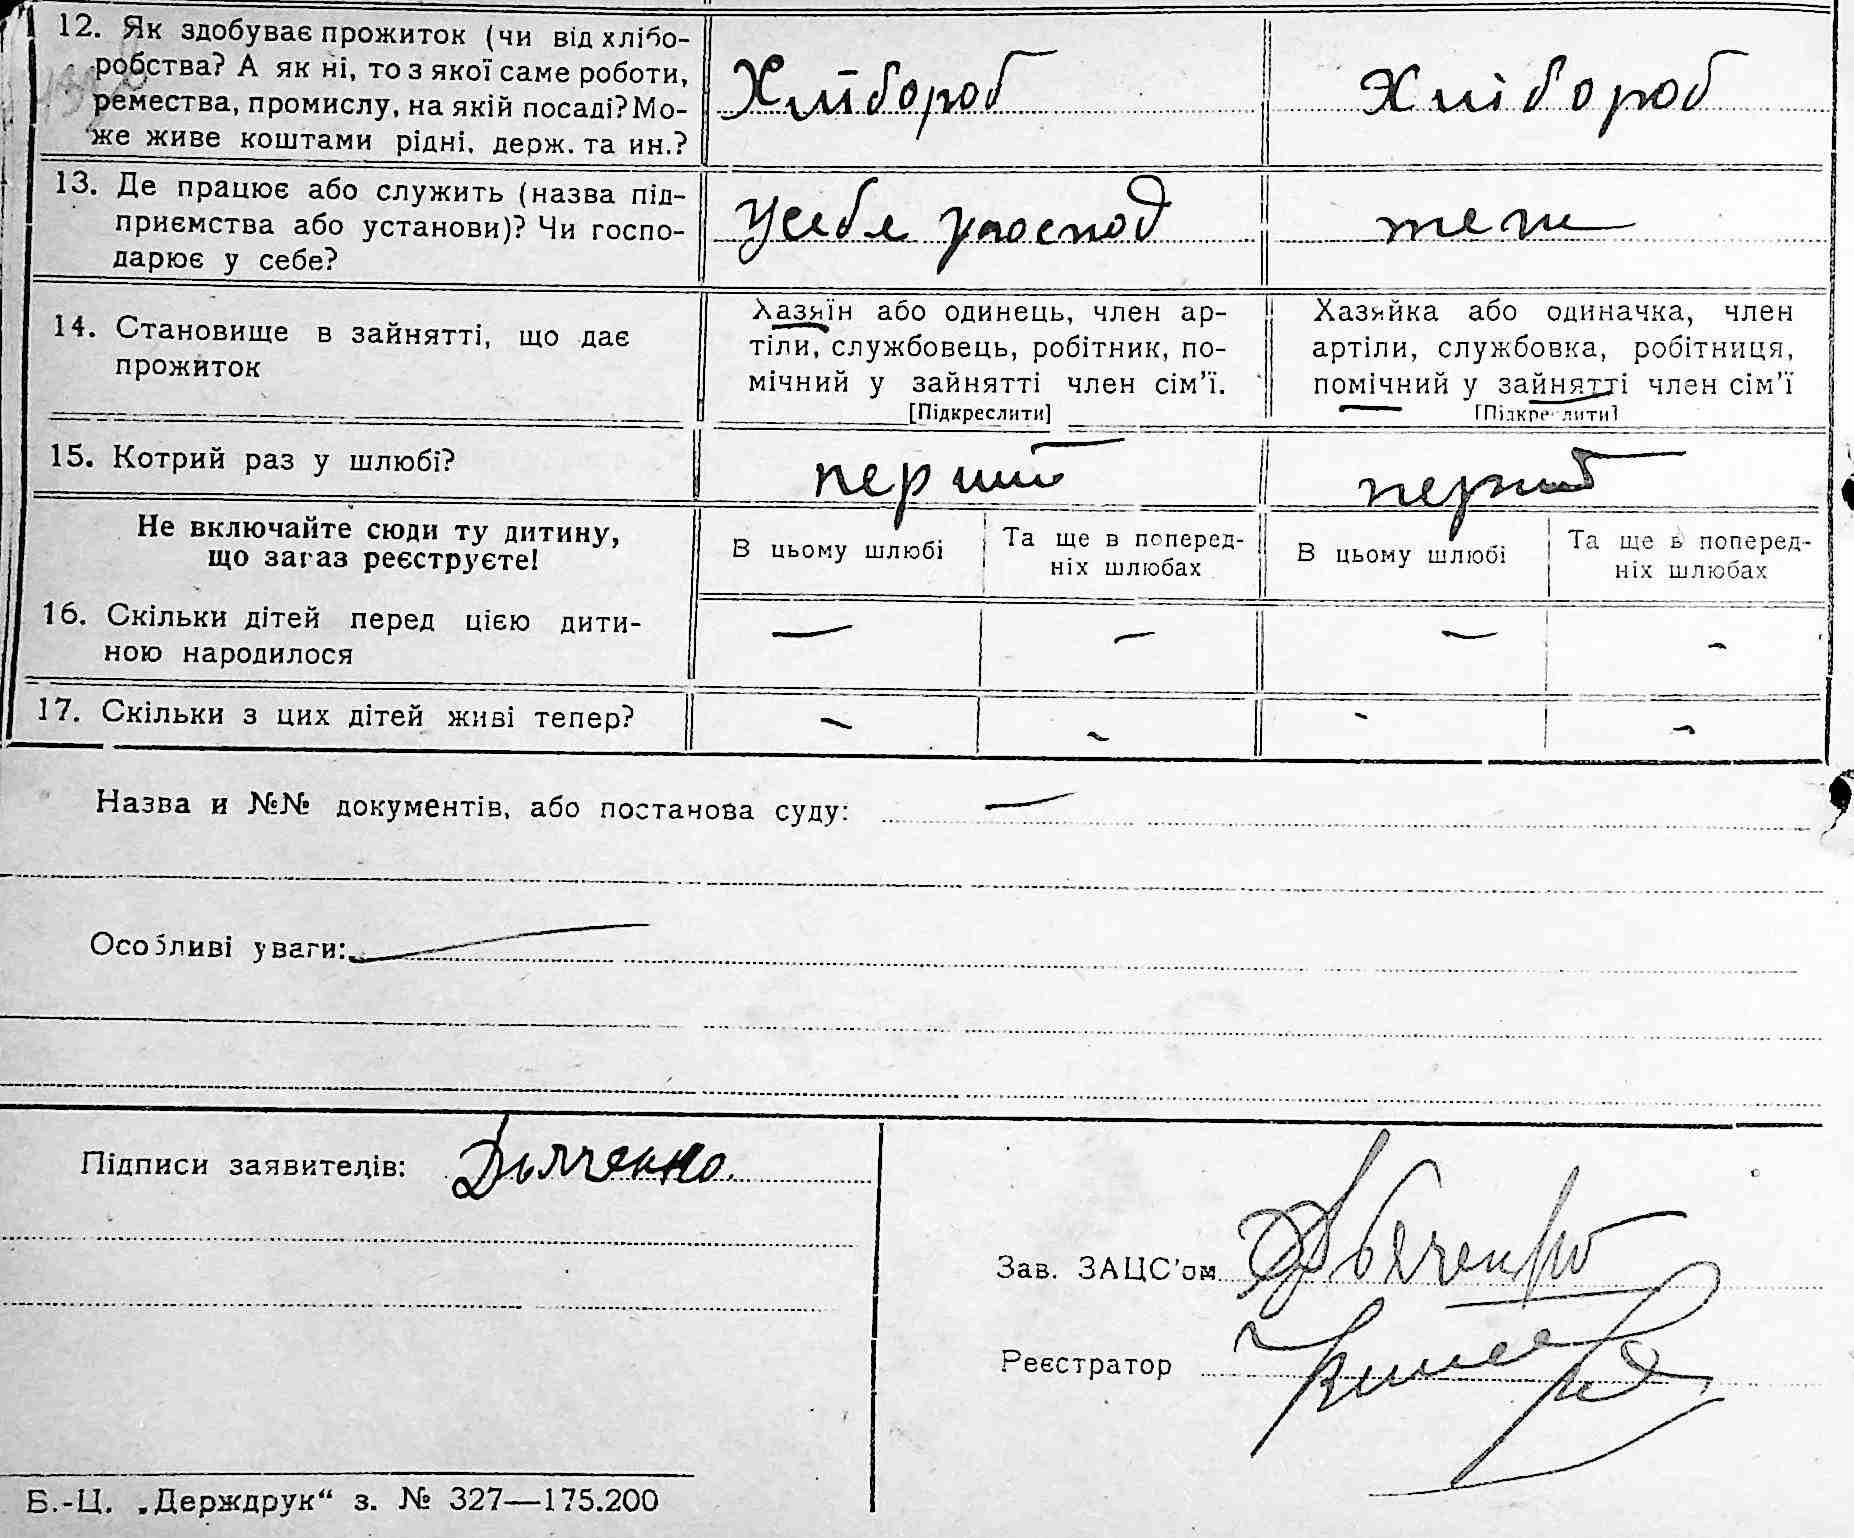 12. Як здобуває прожиток (чи від хлібо-
робства? А як ні, то з якої саме роботи,
ремества, промислу, на якій посаді? Мо-
же живе коштами рідні, держ. та ин.?
Хлїбороб
Хлібороб
13. Де працює або служить (назва під-
приємства або установи)? Чи госпо-
дарює у себе?
У себе господ
теж
14. Становище в зайнятті, що дає
прожиток
Хазяїн або одинець, член ар-
тіли, службовець, робітник, по-
мічний у зайнятті член сім’ї.
[Підкреслити]
Хазяйка або одиначка, член
артіли, службовка, робітниця,
помічний у зайнятті член сім’ї
[Підкреслити]
15. Котрий раз у шлюбі?
перший
перший
Не включайте сюди ту дитину,
що зараз реєструєте!
В цьому шлюбі
Та ще в поперед-
ніх шлюбах
В цьому шлюбі
Та ще в поперед-
ніх шлюбах
16. Скільки дітей перед цією дити-
ною народилося
— — — -
17. Скільки з цих дітей живі тепер?
- - - -
Назва и №№ документів, або постанова суду: —
Особливі уваги: —
Підписи заявителів: Дьяченко.
Зав. ЗАЦС’ом Дьяченко
Реєстратор
Б.-Ц. „Держдрук“ з. № 327—175.200